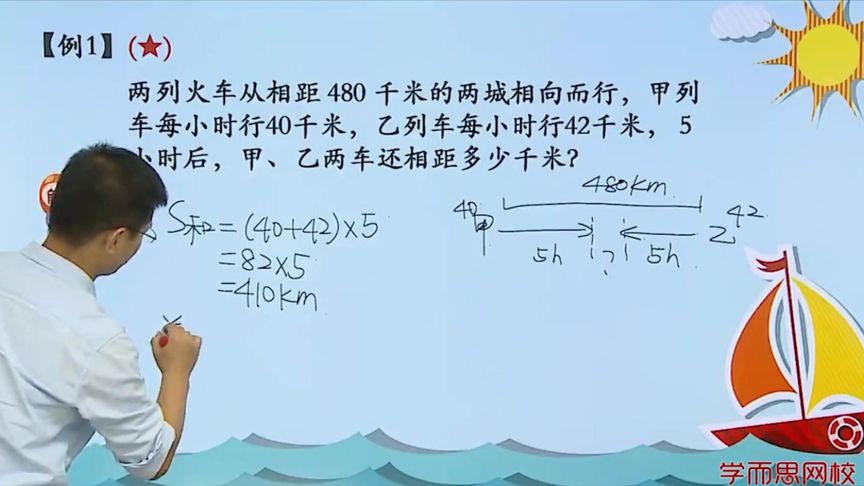 【例1】(★)
两列火车从相距480千米的两城相向而行，甲列
车每小时行40千米，乙列车每小时行42千米，5
小时后，甲、乙两车还相距多少千米？
S和=(40+42)×5
=82×5
=410km
480km
40
甲
乙
42
5h
?
5h
学而思网校